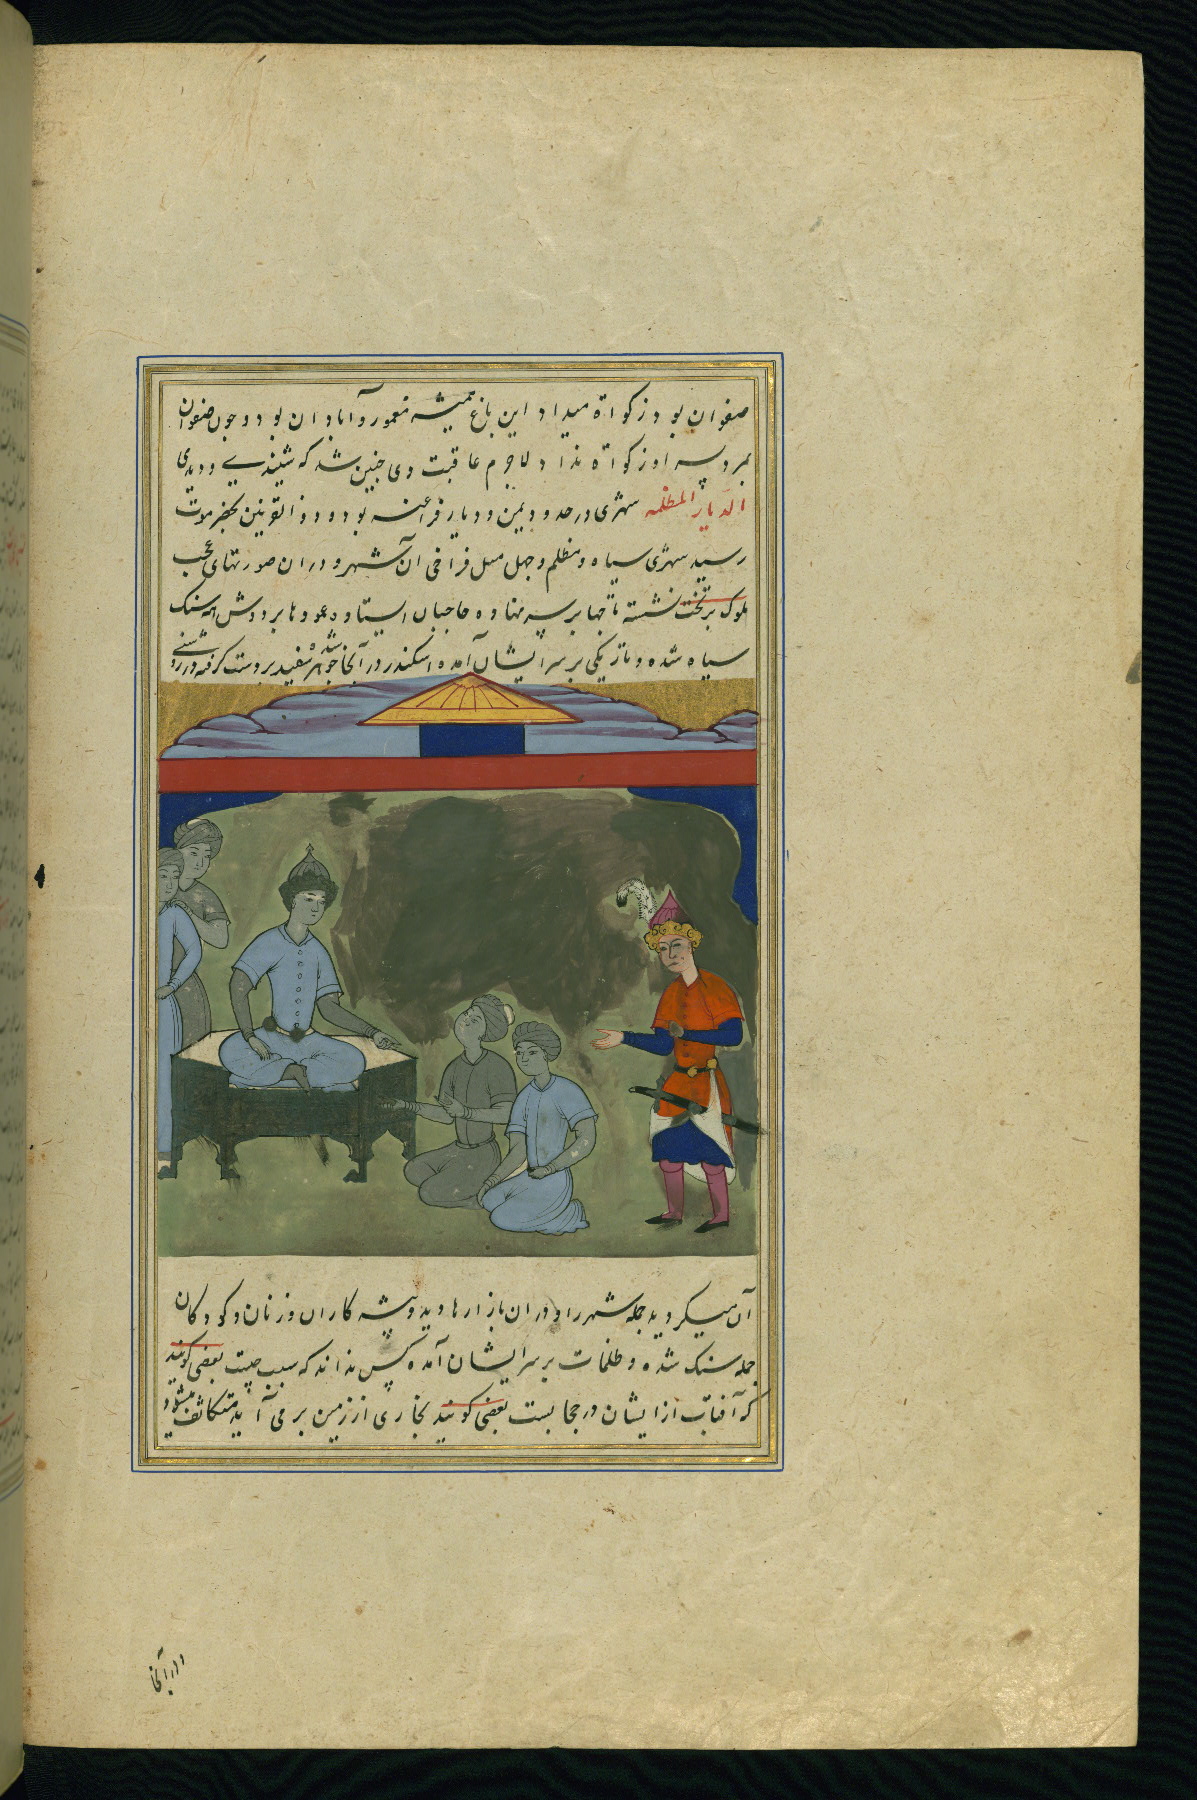 صفوان بود زکواة میداد این باغ همیشه معمور و آبادان بود و چون صفوان
بمرد پسر او زکواة نداد لاجرم عاقبت وی چنین شد که شنیدی و دیدی
الدیار المظلمه شهری در حدود یمن و دیار فراعنه بود و ذو القرنین بحضرموت
رسید شهری سیاه و مظلم و چهل میل فراخی آن شهر و در ان صورتهای عجب
ملوک بر تخت نشسته تاجها بر سر نهاده حاجبان ایستاده عمودها بر دوش همه سنک
سیاه شده و تاریکی بر سر ایشان آمده اسکندر در آنجا شد جوهره سفید بر دست کرفته در روشنی
آن میکردید جمله شهر را و در ان بازارها دید و پیشه کاران و زنان و کودکان
جمله سنک شده و ظلمات بر سر ایشان آمده کس نداند که سبب چیست بعضی کویند
که آفتاب از ایشان در حجابست بعضی کویند بخاری از زمین بر می آید متکاثف میشود
و در آنجا